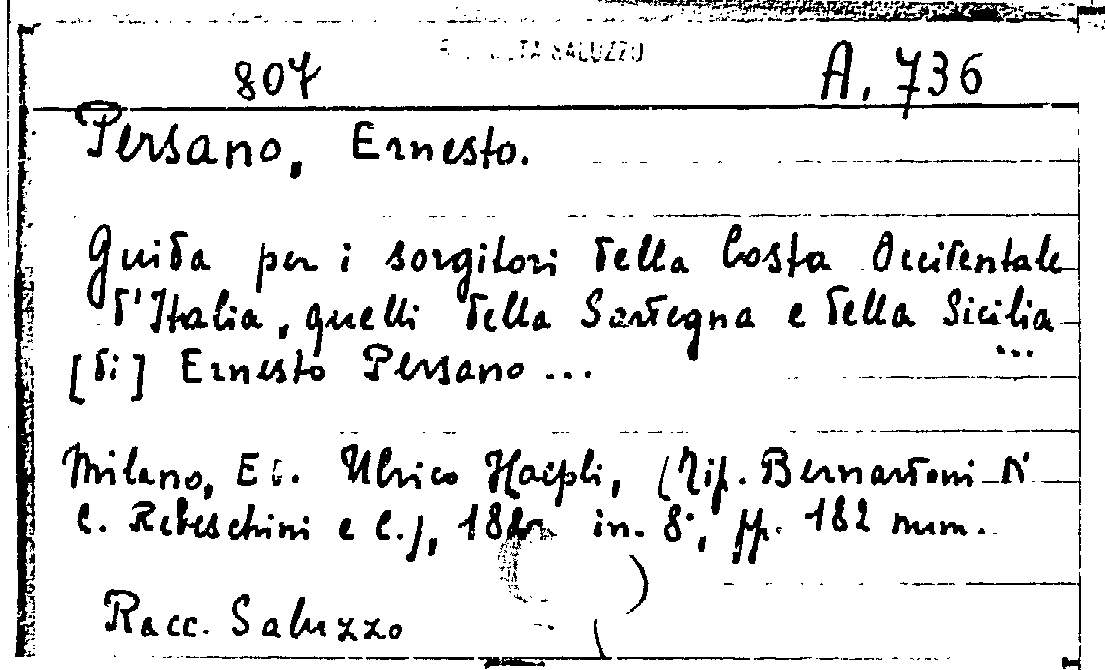 SALUZZO
807 A. 736
Persano, Ernesto.
Guida per i sorgitori della Costa Occidentale
d'Italia, quelli della Sardegna e della Sicilia
...
[di] Ernesto Persano ...
Milano, Ed. Ulrico Hoepli, (Tip. Bernardoni di
C. Rebeschini e C.), in. 8°, pp. 182 num.
Racc. Saluzzo